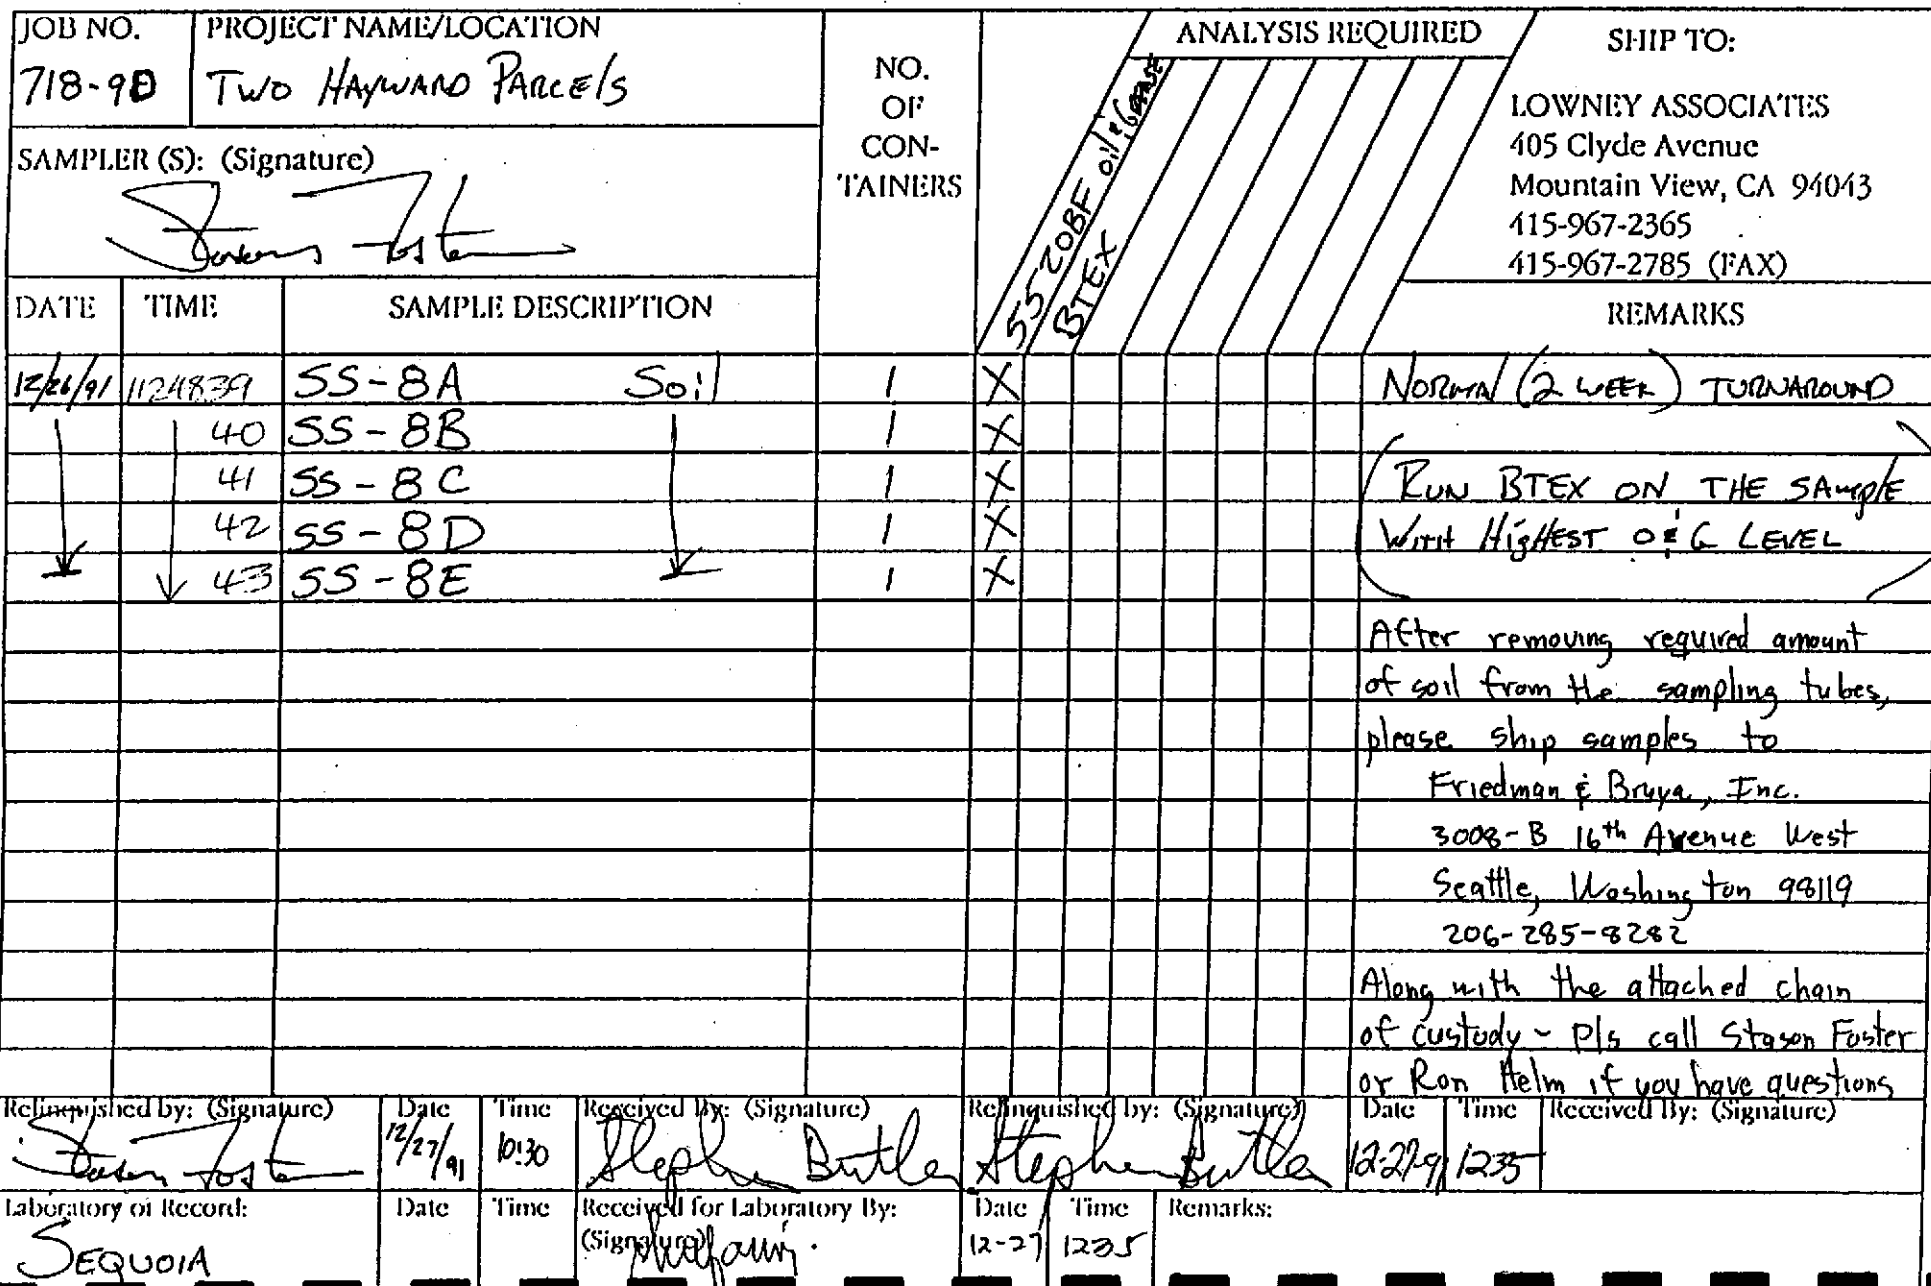 JOB NO.
718-9D
PROJECT NAME/LOCATION
TWO HAYWARD PARCELS
SAMPLER (S): (Signature)
Stason Foster
NO.
OF
CON-
TAINERS
ANALYSIS REQUIRED
5520BF oil & Grease
BTEX
SHIP TO:
LOWNEY ASSOCIATES
405 Clyde Avenue
Mountain View, CA 94043
415-967-2365
415-967-2785 (FAX)
REMARKS
DATE TIME SAMPLE DESCRIPTION
12/26/91 1124839 SS-8A Soil 1 X
40 SS-8B 1 X
41 SS-8C 1 X
42 SS-8D 1 X
43 SS-8E 1 X
NORMAL (2 WEEK) TURNAROUND
(RUN BTEX ON THE SAMPLE
WITH HIGHEST O&G LEVEL)
After removing required amount
of soil from the sampling tubes,
please ship samples to
Friedman & Bruya, Inc.
3008-B 16th Avenue West
Seattle, Washington 98119
206-285-8282
Along with the attached chain
of custody - Pls call Stason Foster
or Ron Helm if you have questions
Relinquished by: (Signature)
Stason Foster
Date
12/27/91
Time
10:30
Received By: (Signature)
Stephen Butler
Relinquished by: (Signature)
Stephen Butler
Date
12-27-91
Time
1235
Received By: (Signature)
Laboratory of Record:
SEQUOIA
Date
Time
Received for Laboratory By:
(Signature)
Date
12-27
Time
1235
Remarks: